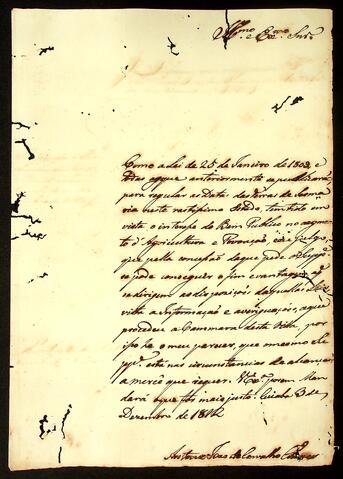 Illmo. e Exmo. Snr.
Como a Lei de 25 de Janeiro de 1809 e
que anteriormente se publicarão
para regular as Datas de terras de Sesma
ria neste vastissimo Estado, tenhão em
vista o interesse do Bem Publico no augmto
d'Agricultura e Povoação, e eu julgo,
que pella concessão da que pede o Suppe
se pode conseguir o fim e vantagens aq
se dirigem as disposições daquella Lei
vista a Informação e averiguação, a que
procedeu a Cammara desta Villa, por
isso he o meu parecer, que o mesmo
está nas circunstancias de alcançar
a mercê que requer. V. Exa. porem Man
dará o que for mais justo. Cuiabá 3 de
Dezembro de 1812
Antonio Joze de Carvalho